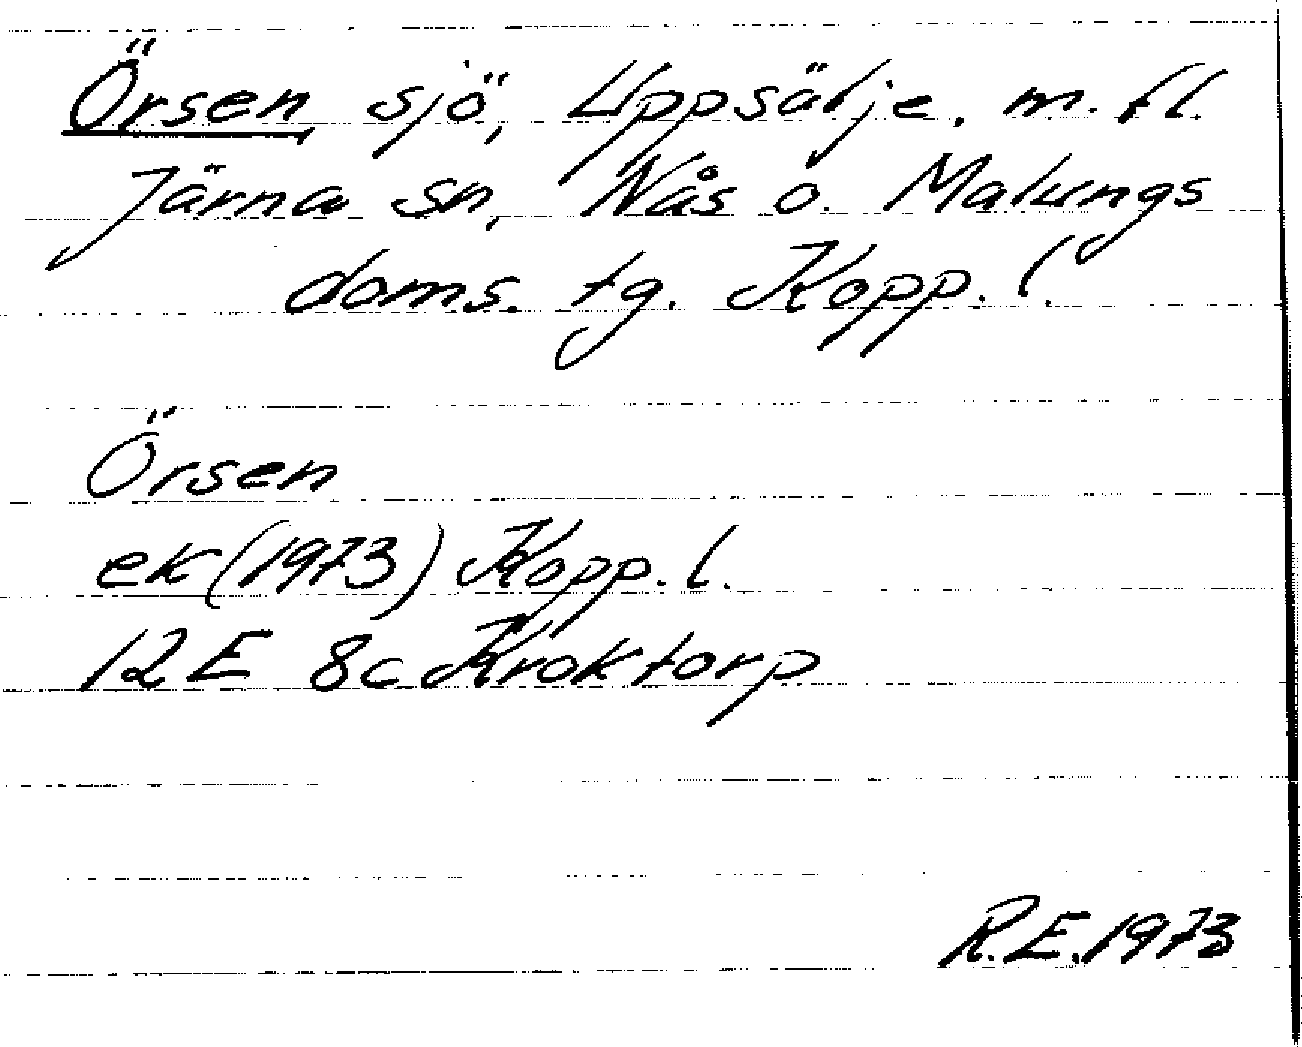 Örsen, sjö, Uppsälje, m. fl.
Järna sn, Nås o. Malungs
doms. tg. Kopp. l.
Örsen
ek (1973) Kopp. l.
12E 8c Kroktorp
R.E. 1973